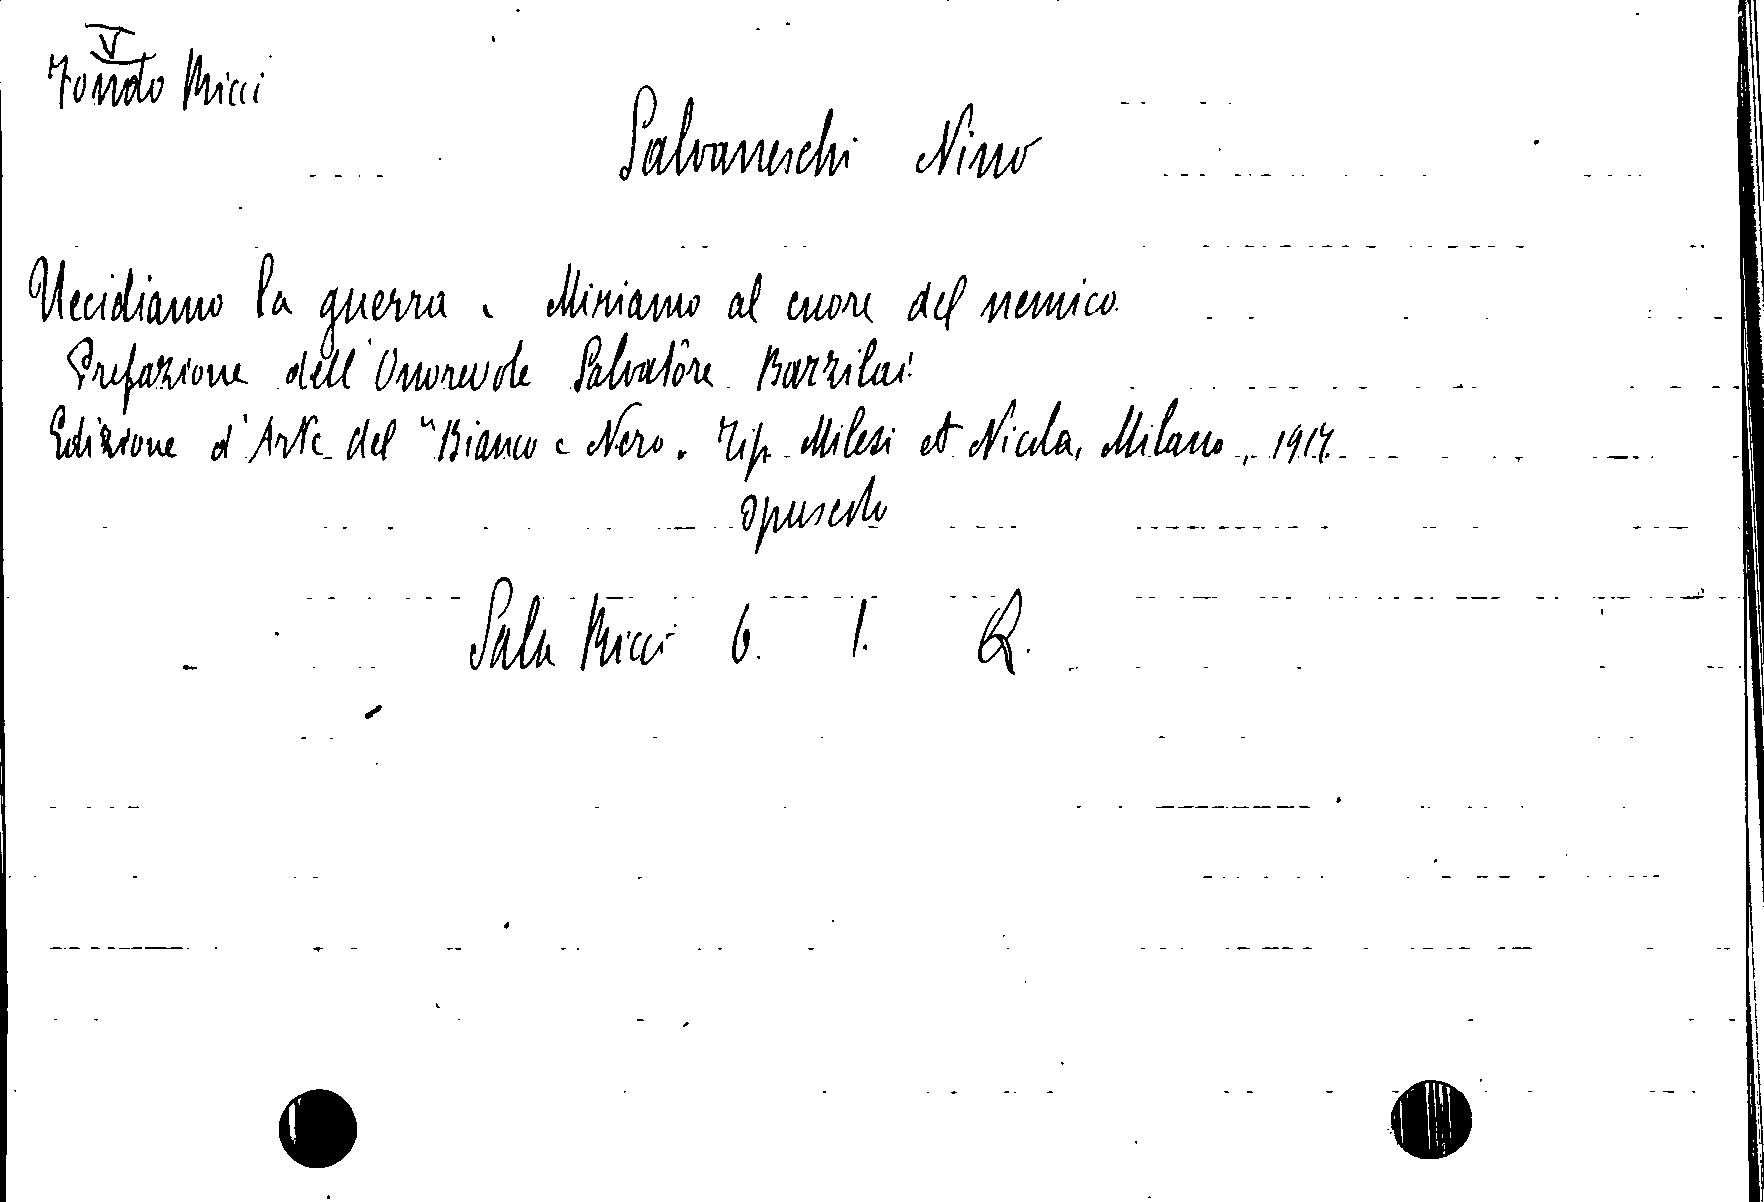 V
Fondo Ricci
Salvaneschi Nino
Uccidiamo la guerra. Miriamo al cuore del nemico.
Prefazione dell'Onorevole Salvatore Barzilai
Edizione d'Arte del "Bianco e Nero. Tip. Milesi et Nicola, Milano, 1917.
opuscolo
Sala Ricci 6. 1. Q.